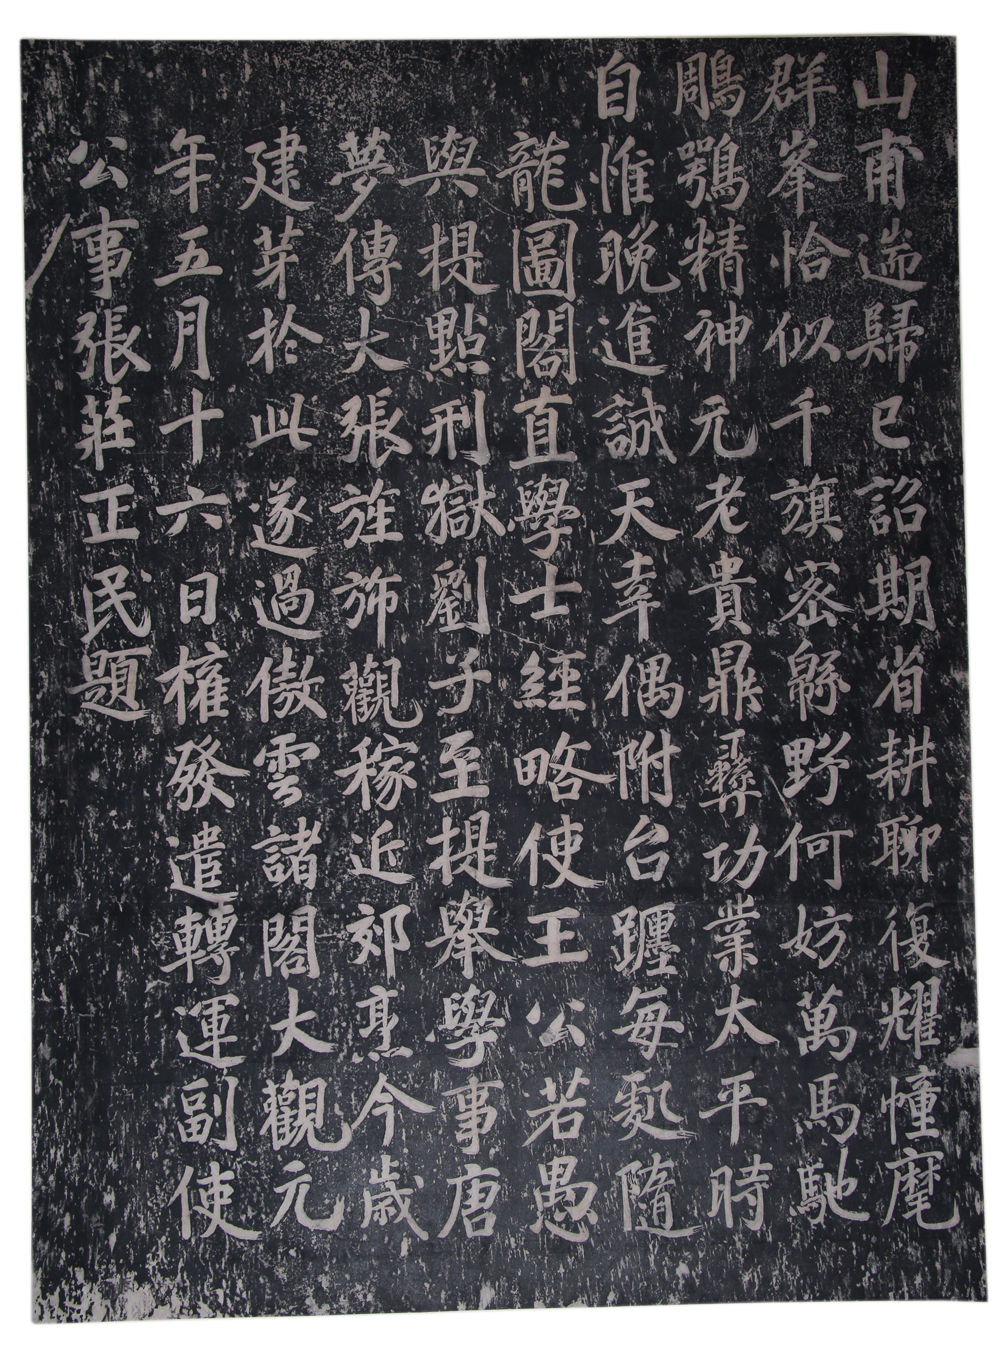 山甫遄歸已詔期省耕聊復耀幢麾
群峯恰似千旗密緜野何妨萬馬馳
鵰鶚精神元老貴鼎彝功業太平時
自惟晚進誠天幸偶附台躔每隨
龍圖閣直學士經略使王公若愚
與提點刑獄劉子至提舉學事唐
夢傳大張旌斾觀稼近郊烹今歲
建芽於此遂過傲雲諸閣大觀元
年五月十六日權發遣轉運副使
公事張莊正民題